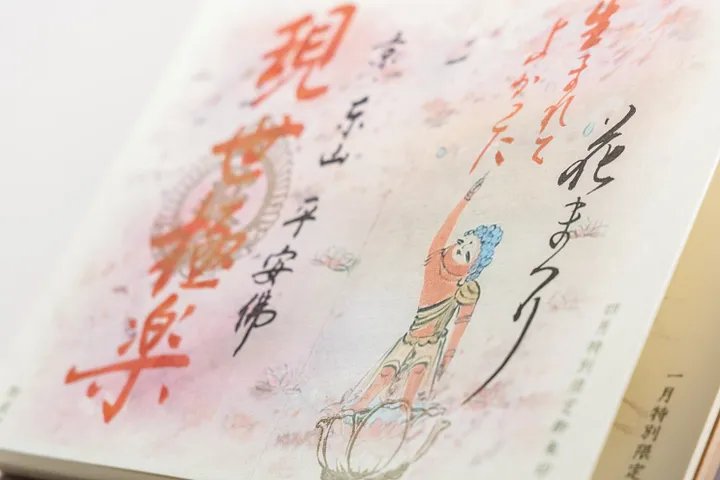 花まつり
生まれて
よかった
四月特別限定御朱印
京 東山 平安佛
現世極楽
一月特別限定